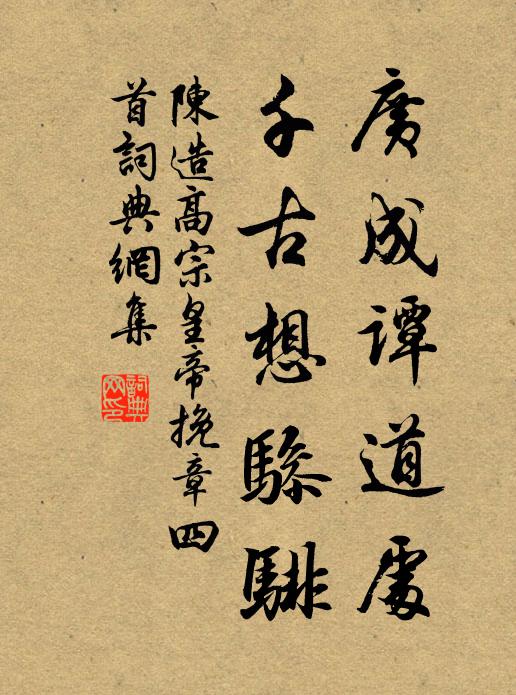 廣成譚道處
千古想驂騑
陳造高宗皇帝挽章四
首詞典網集
詞典網印